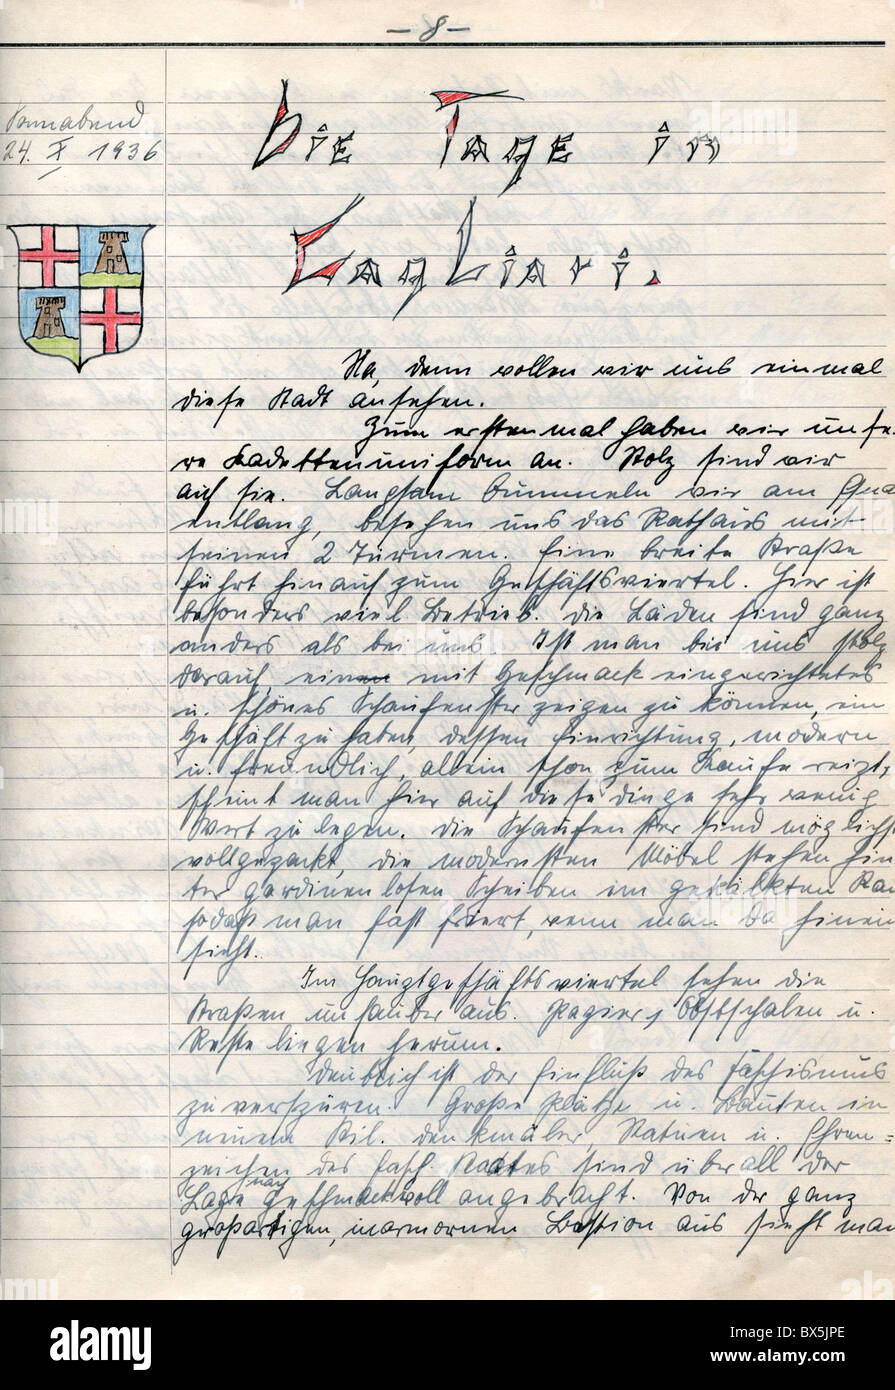 - 8 -
Sonnabend
24. X 1936
Die Tage in
Cagliari.
Na, denn wollen wir uns einmal
diese Stadt ansehen.
Zum erstenmal haben wir unse-
re Kadettenuniform an. Stolz sind wir
auf sie. Langsam bummeln wir am Quai
entlang, besehen uns das Rathaus mit
seinen 2 Türmen. Eine breite Straße
führt hinauf zum Geschäftsviertel. Hier ist
besonders viel Betrieb. Die Läden sind ganz
anders als bei uns. Ist man bei uns stolz
darauf, ein mit Geschmack eingerichtetes
u. schönes Schaufenster zeigen zu können, ein
Geschäft zu haben, dessen Einrichtung, modern
u. freundlich, allein schon zum Kaufe reizt,
scheint man hier auf diese Dinge sehr wenig
Wert zu legen. Die Schaufenster sind möglichst
vollgepackt, die modernsten Möbel stehen hin
ter gardinenlosen Scheiben im gekalkten
sodaß man fast friert, wenn man da hinein
sieht.
Im Hauptgeschäftsviertel sehen die
Straßen unsauber aus. Papier, Obstschalen u.
Reste liegen herum.
Deutlich ist der Einfluß des Faschismus
zu verspüren. Große Plätze u. Bauten in
neuem Stil. Denkmäler, Statuen u. Ehren=
zeichen des fasch. Staates sind überall der
Lage nach geschmackvoll angebracht. Von der ganz
großartigen, marmornen Bastion aus sieht man
alamy
Image ID: BX5JPE
www.alamy.com